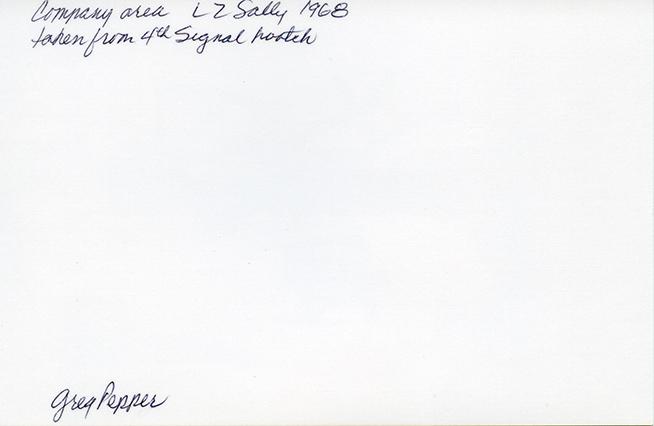 Company area LZ Sally 1968
taken from 4th Signal hootch
Greg Pepper